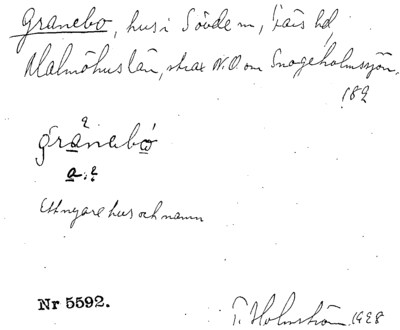 Granebo, hus i Sövde sn, Färs hd,
Malmöhus län, strax N.O om Snogeholmssjön.
182
grànebó
a:?
Ett nyare hus och namn
Nr 5592.
T. Holmström 1928